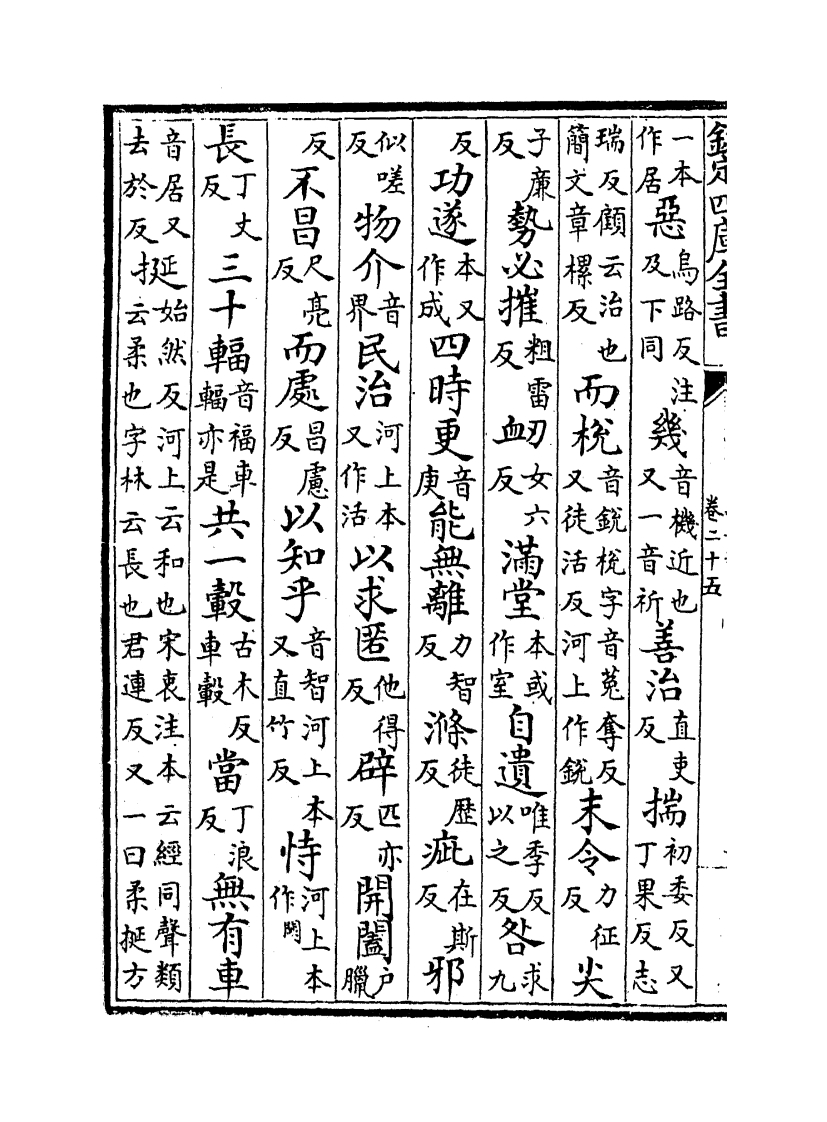 欽定四庫全書 卷二十五
一本作居惡烏路反注及下同幾音機近也又一音祈善治直吏反揣初委反又丁果反志
瑞反顧云治也簡文章樏反而梲音銳梲字音菟奪反又徒活反河上作銳末令力征反尖
子廉反勢必摧粗雷反衂女六反滿堂本或作室自遺唯季反以之反咎求九
反功遂本又作成四時更音庚能無離力智反滌徒歷反疵在斯反邪
似嗟反物介音界民治河上本又作活以求匿他得反辟匹亦反開闔户臘
反不昌尺亮反而處昌慮反以知乎音智河上本又直竹反恃河上本作
長丁丈反三十輻音福車輻亦是共一轂古木反車轂當丁浪反無有車
音居又去於反挻始然反河上云和也宋衷注本云經同聲類云柔也字林云長也君連反又一曰柔挻方